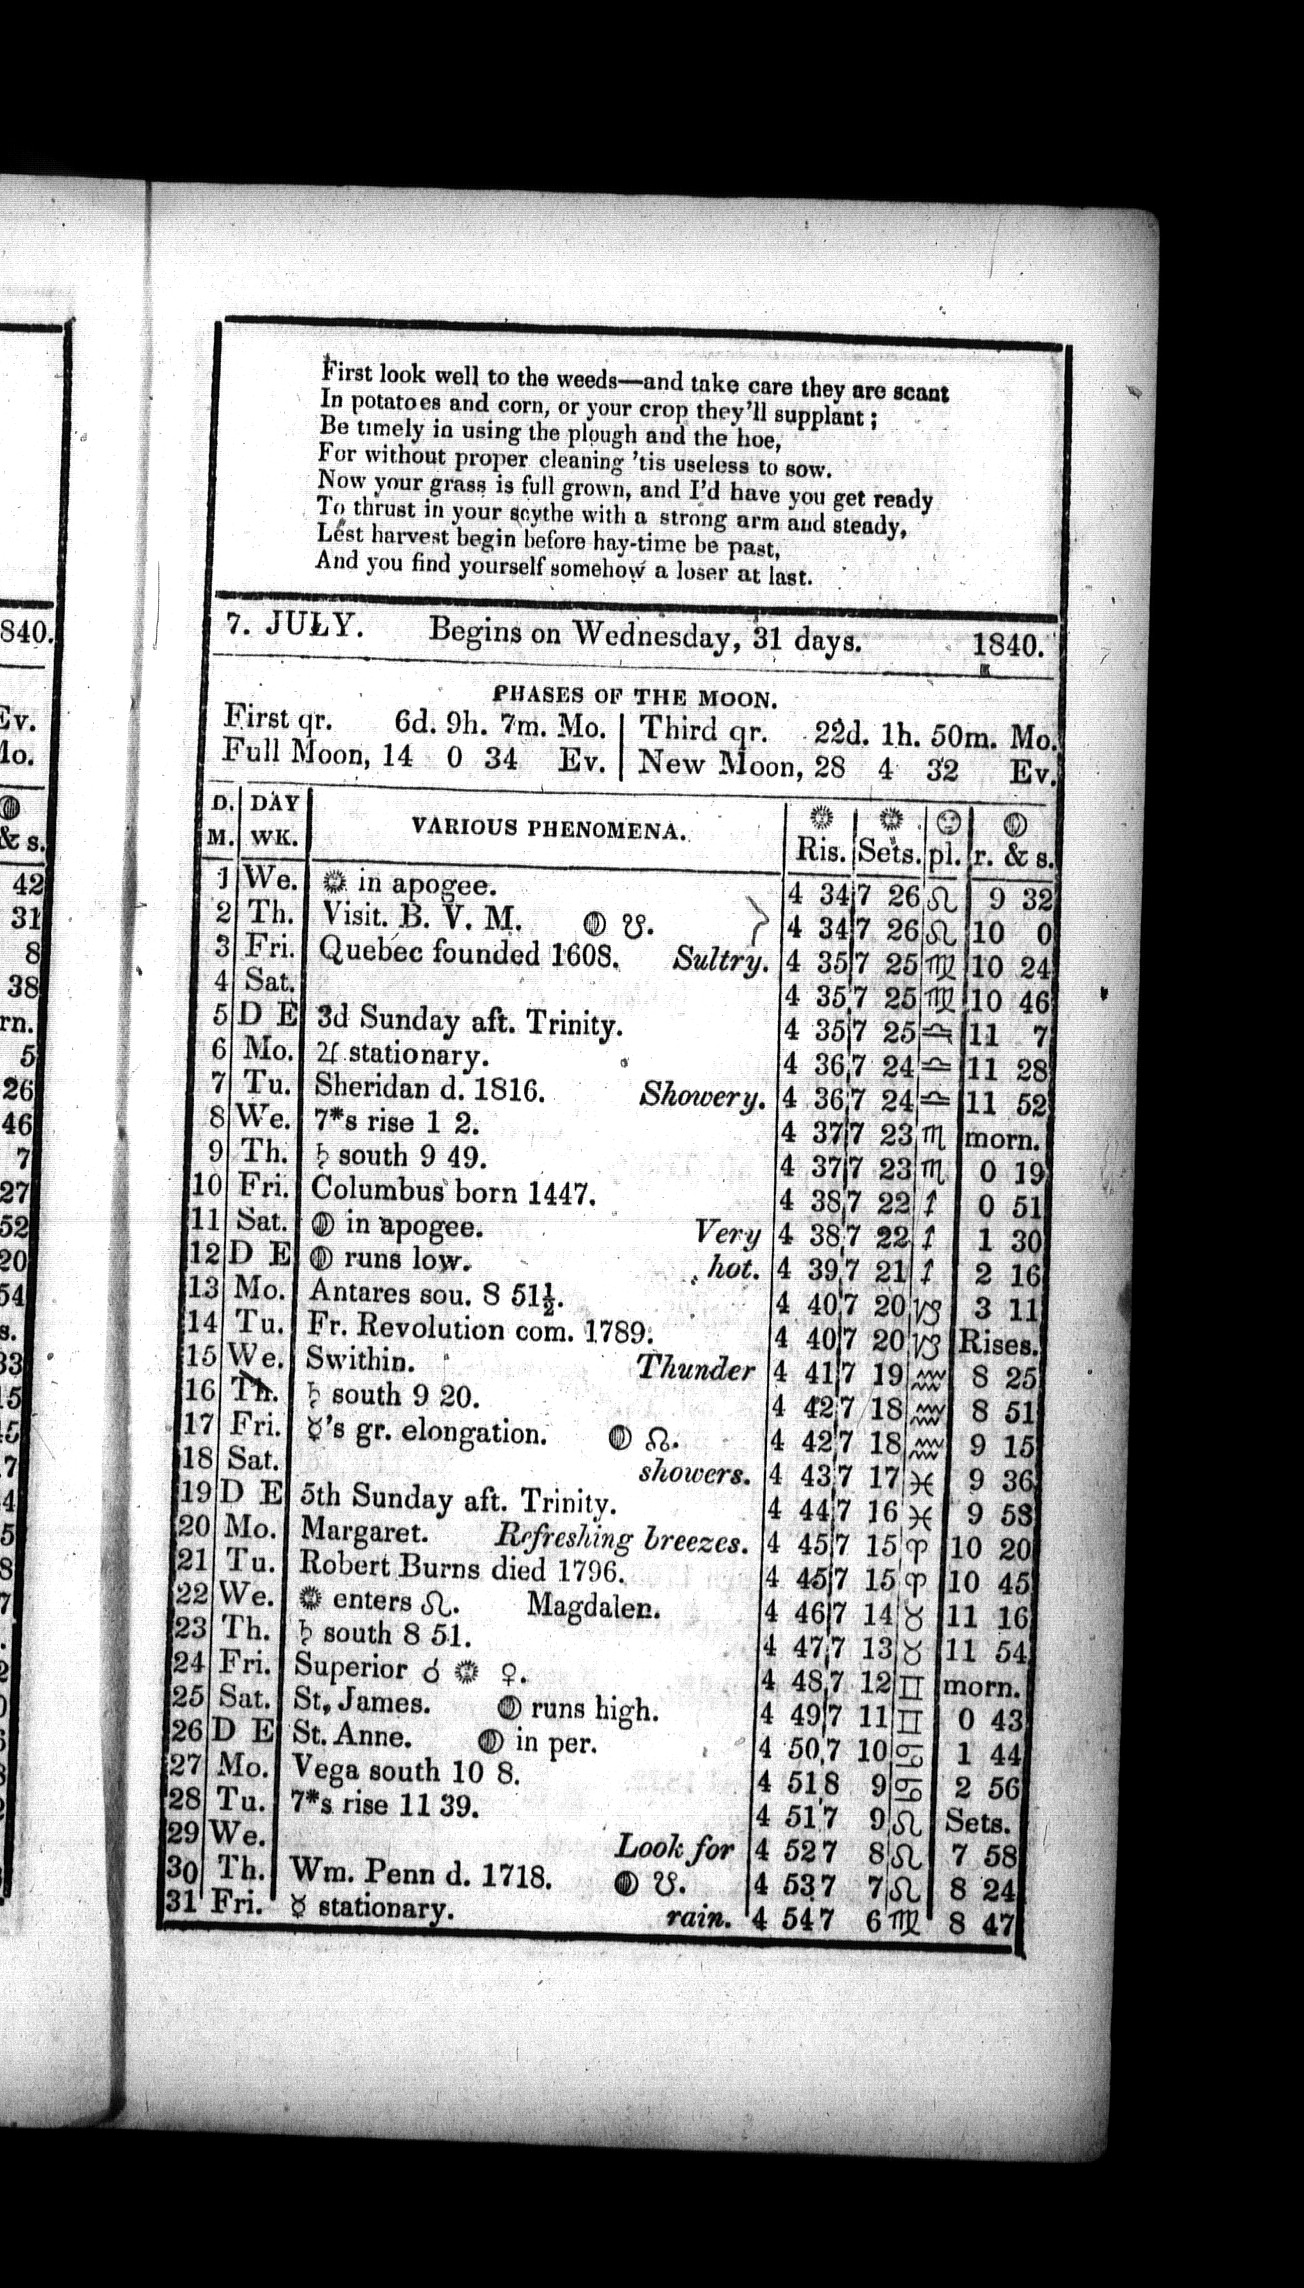 First look well to the weeds—and take care they are scant
In potatoes and corn, or your crop they'll supplant ;
Be timely in using the plough and the hoe,
For without proper cleaning 'tis useless to sow.
Now your grass is full grown, and I'd have you get ready
To thrust in your scythe with a strong arm and steady,
Lest harvest begin before hay-time be past,
And you find yourself somehow a loser at last.
7. JULY. Begins on Wednesday, 31 days. 1840.
PHASES OF THE MOON.
First qr. 6d. 9h. 7m. Mo. | Third qr. 22d. 1h. 50m. Mo.
Full Moon, 14 0 34 Ev. | New Moon, 28 4 32 Ev.
D. M. | DAY WK. | VARIOUS PHENOMENA. | ☉ Ris. | ☉ Sets. | pl. | ☽ r. & s.
1 We. ☉ in apogee. 4 34 7 26 ♌ 9 32
2 Th. Visit. B. V. M. ☽ ☋. } 4 34 7 26 ♌ 10 0
3 Fri. Quebec founded 1608. Sultry. 4 35 7 25 ♍ 10 24
4 Sat. 4 35 7 25 ♍ 10 46
5 D E 3d Sunday aft. Trinity. 4 35 7 25 ♎ 11 7
6 Mo. ♃ stationary. 4 36 7 24 ♎ 11 28
7 Tu. Sheridan d. 1816. Showery. 4 36 7 24 ♎ 11 52
8 We. 7*s rise 1 2. 4 37 7 23 ♏ morn.
9 Th. ♄ south 9 49. 4 37 7 23 ♏ 0 19
10 Fri. Columbus born 1447. 4 38 7 22 ♐ 0 51
11 Sat. ☽ in apogee. Very 4 38 7 22 ♐ 1 30
12 D E ☽ runs low. hot. 4 39 7 21 ♐ 2 16
13 Mo. Antares sou. 8 51½. 4 40 7 20 ♑ 3 11
14 Tu. Fr. Revolution com. 1789. 4 40 7 20 ♑ Rises.
15 We. Swithin. Thunder 4 41 7 19 ♒ 8 25
16 Th. ♄ south 9 20. 4 42 7 18 ♒ 8 51
17 Fri. ☿'s gr. elongation. ☽ ☊. 4 42 7 18 ♒ 9 15
18 Sat. showers. 4 43 7 17 ♓ 9 36
19 D E 5th Sunday aft. Trinity. 4 44 7 16 ♓ 9 58
20 Mo. Margaret. Refreshing breezes. 4 45 7 15 ♈ 10 20
21 Tu. Robert Burns died 1796. 4 45 7 15 ♈ 10 45
22 We. ☉ enters ♌. Magdalen. 4 46 7 14 ♉ 11 16
23 Th. ♄ south 8 51. 4 47 7 13 ♉ 11 54
24 Fri. Superior ☌ ☉ ♀. 4 48 7 12 ♊ morn.
25 Sat. St. James. ☽ runs high. 4 49 7 11 ♊ 0 43
26 D E St. Anne. ☽ in per. 4 50 7 10 ♋ 1 44
27 Mo. Vega south 10 8. 4 51 8 9 ♋ 2 56
28 Tu. 7*s rise 11 39. 4 51 7 9 ♌ Sets.
29 We. Look for 4 52 7 8 ♌ 7 58
30 Th. Wm. Penn d. 1718. ☽ ☋. 4 53 7 7 ♌ 8 24
31 Fri. ☿ stationary. rain. 4 54 7 6 ♍ 8 47